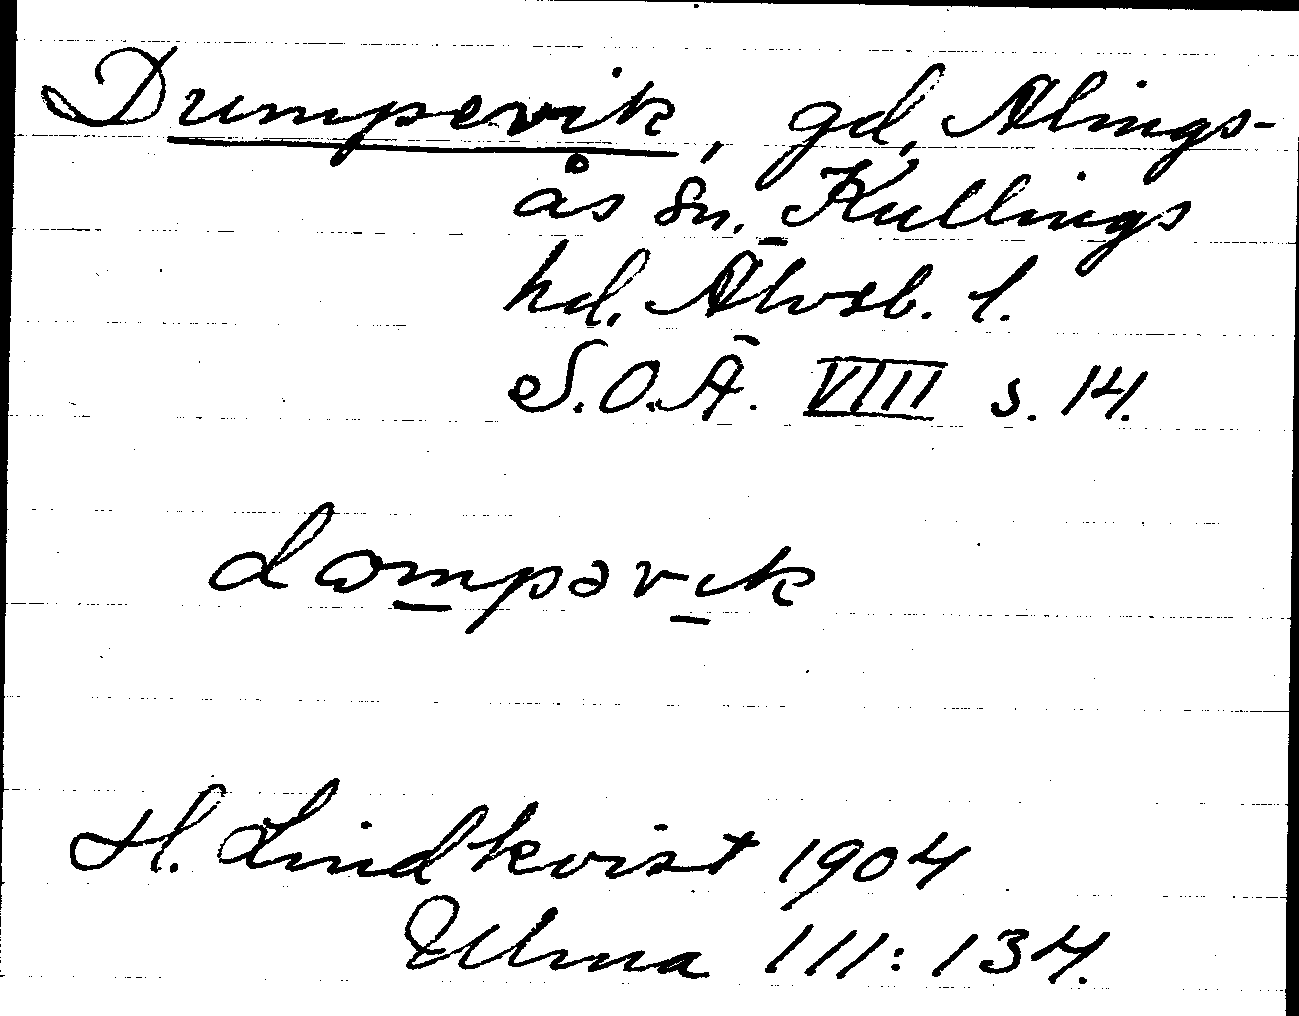 Dumpevik, gd, Alings-
ås sn. Kullings
hd. Älvsb. l.
S.O.Ä. VIII s. 14.
dɷmpəvik
H. Lindkvist 1904
Ulma 111:134.